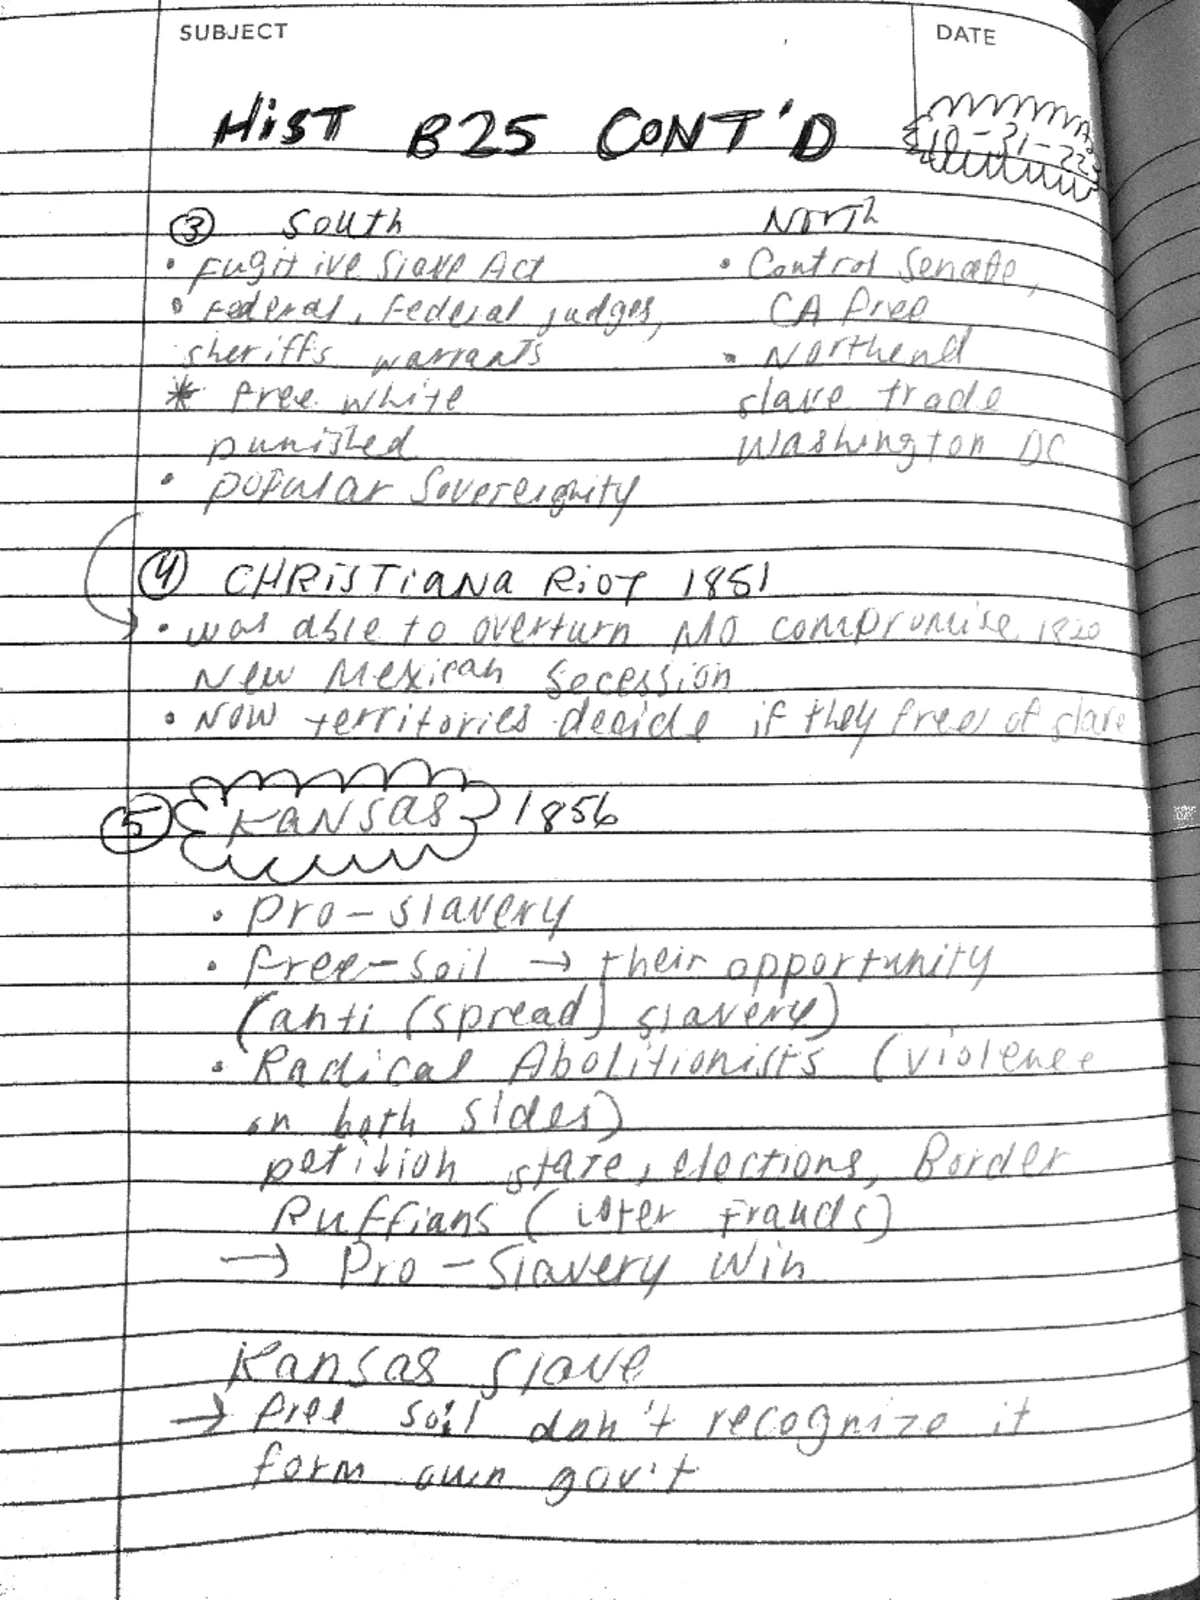 SUBJECT
DATE
HIST B25 CONT'D
10-21-22
③ South
North
• Fugitive Slave Act
• Control Senate,
• Federal, Federal judges,
CA Free
sheriffs warrants
• Northend
* free white
slave trade
punished
Washington DC
• popular Sovereignity
④ CHRISTIANA RIOT 1851
• was able to overturn MO compromise 1820
New Mexican Secession
• Now territories decide if they free of slave
⑤ KANSAS 1856
• Pro-slavery
• free-soil → their opportunity
(anti (spread) slavery)
• Radical Abolitionists (violence
on both sides)
petition state, elections, Border
Ruffians ( frauds)
→ Pro-Slavery Win
Kansas Slave
→ free soil don't recognize it
form own gov't